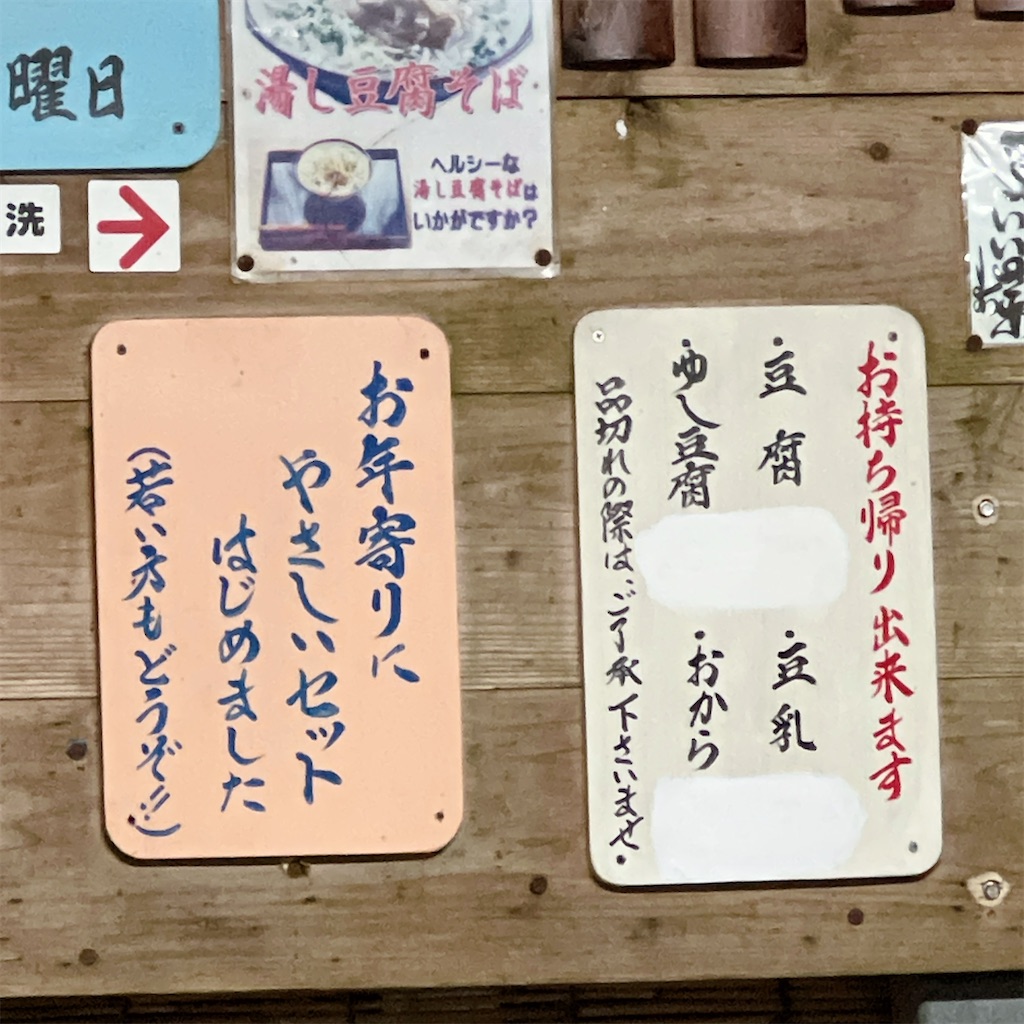 曜日
洗
湯し豆腐そば
ヘルシーな
湯し豆腐そばは
いかがですか？
お年寄りに
やさしいセット
はじめました
(若い方もどうぞ!!)
お持ち帰り出来ます
・豆腐
・豆乳
・ゆし豆腐
・おから
品切れの際はご了承下さいませ。